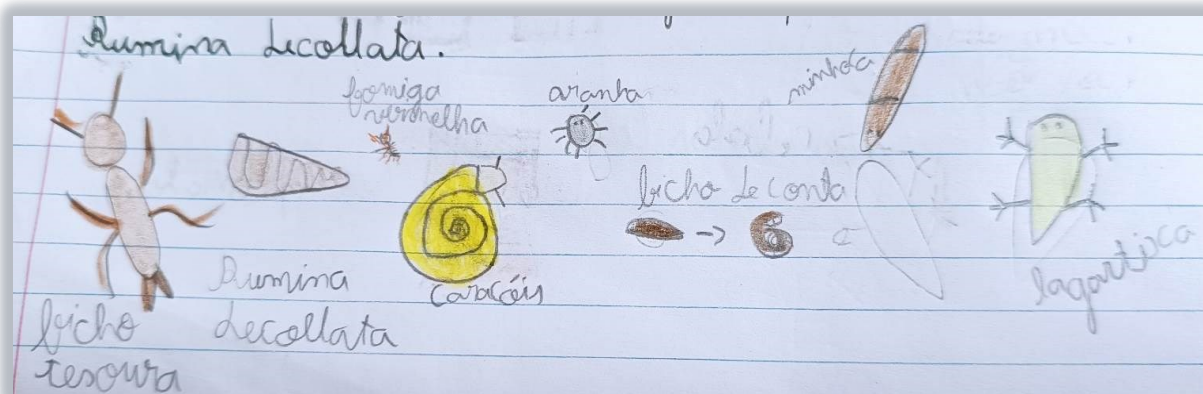 Rumina decollata.
formiga
vermelha
aranha
minhoca
bicho de conta
caracóis
Rumina
decollata
lagartixa
bicho
tesoura